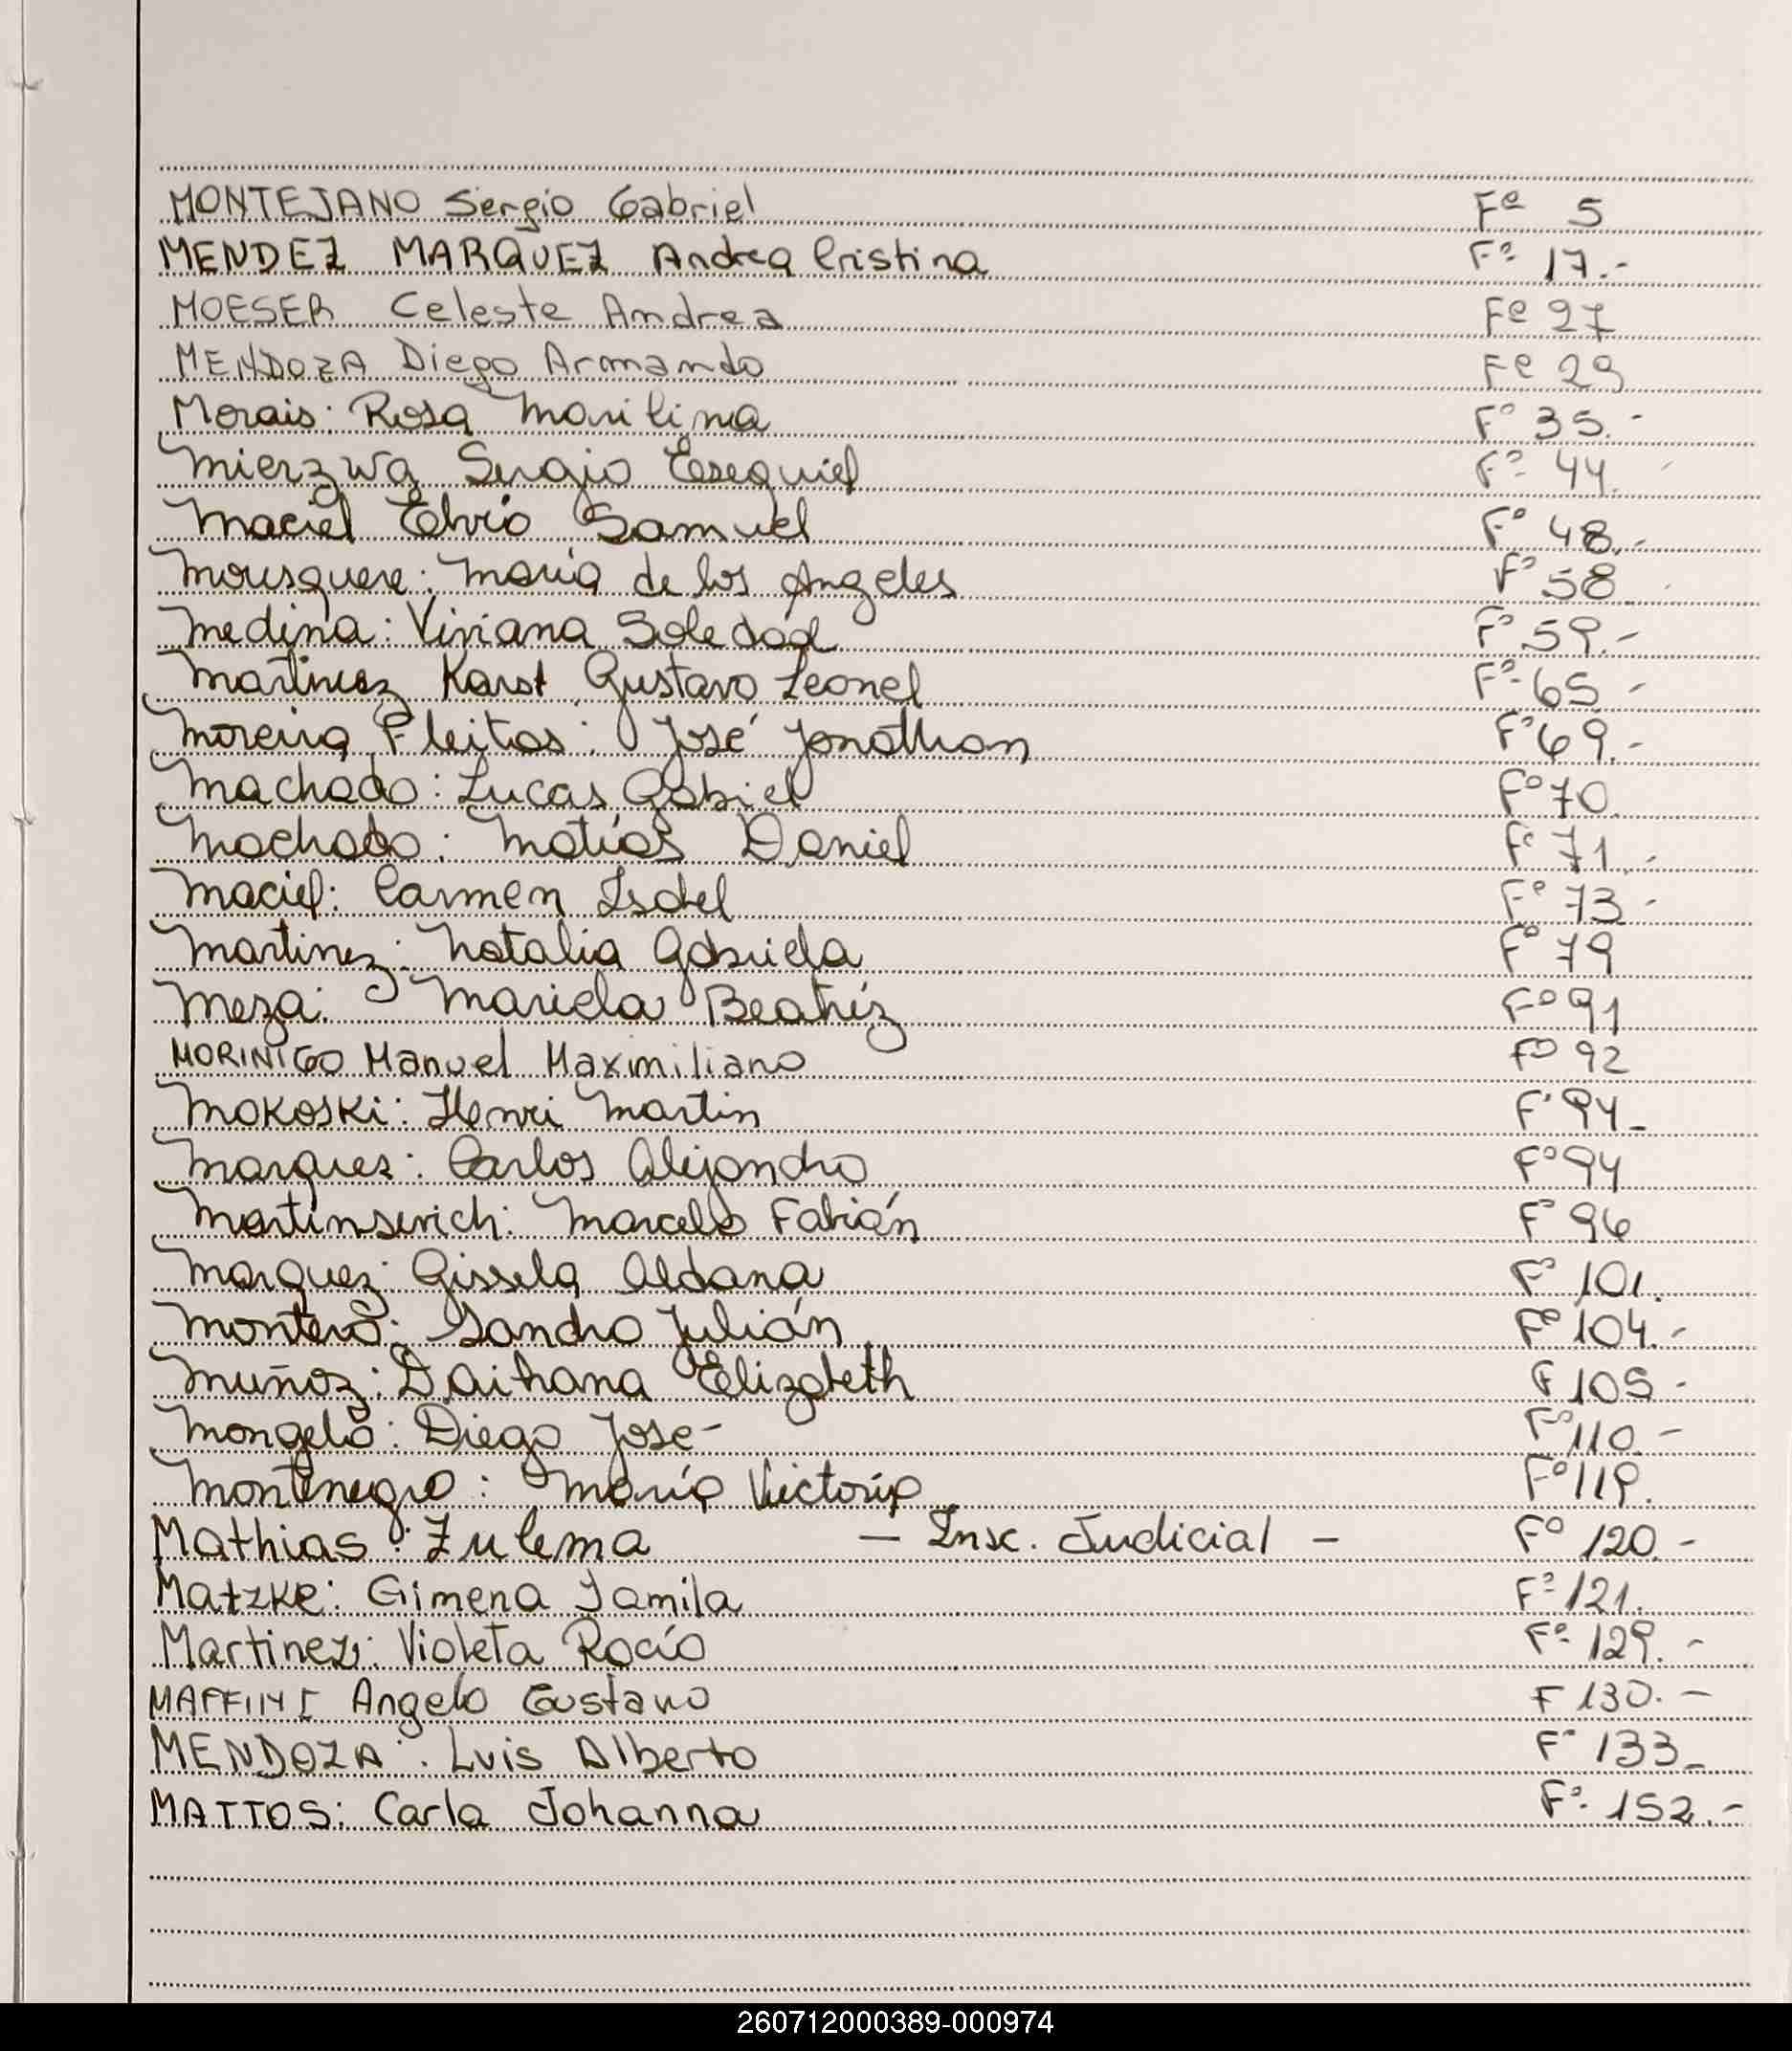 MONTEJANO Sergio Gabriel Fº 5
MENDEZ MARQUEZ Andrea Cristina Fº 17.-
MOESER Celeste Andrea Fº 27
MENDOZA Diego Armando Fº 29
Morais: Rosa Marilina Fº 35.-
Mierzwa Sergio Esequiel Fº 44.
Maciel Elvio Samuel Fº 48.-
Mousquere: María de los Angeles Fº 58
Medina: Viviana Soledad Fº 59.-
Martinez Karst Gustavo Leonel Fº 65 -
Moreira Fleitas: José Jonathan Fº 69.-
Machado: Lucas Gabriel Fº 70.
Machado: Matías Daniel Fº 71.-
Maciel: Carmen Isabel Fº 73.-
Martinez: Natalia Gabriela Fº 79
Meza: Mariela Beatríz Fº 91
MORINIGO Manuel Maximiliano Fº 92
Mokoski: Henri Martin Fº 94_
Marques: Carlos Alejandro Fº 94
Martinsevich: Marcelo Fabián Fº 96
Marquez: Gissela Aldana Fº 101.
Montero: Sandro Julián Fº 104.-
Muñoz: Daihana Elizabeth Fº 105 -
Mongelo: Diego José Fº 110 -
Montenegro: María Victoria Fº 119.
Mathias: Zulema - Insc. Judicial - Fº 120.-
Matzke: Gimena Jamila Fº 121.
Martinez: Violeta Rocío Fº 129.-
MAFFINI Angelo Gustavo F 130.-
MENDOZA: Luis Alberto Fº 133_
MATTOS: Carla Johanna Fº 152.-
260712000389-000974